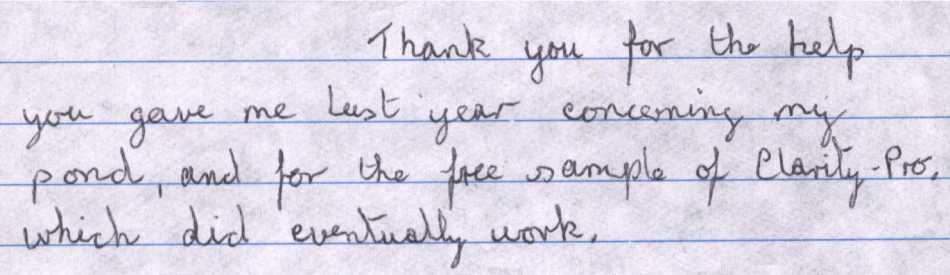 Thank you for the help
you gave me last year concerning my
pond, and for the free sample of Clarity-Pro,
which did eventually work.